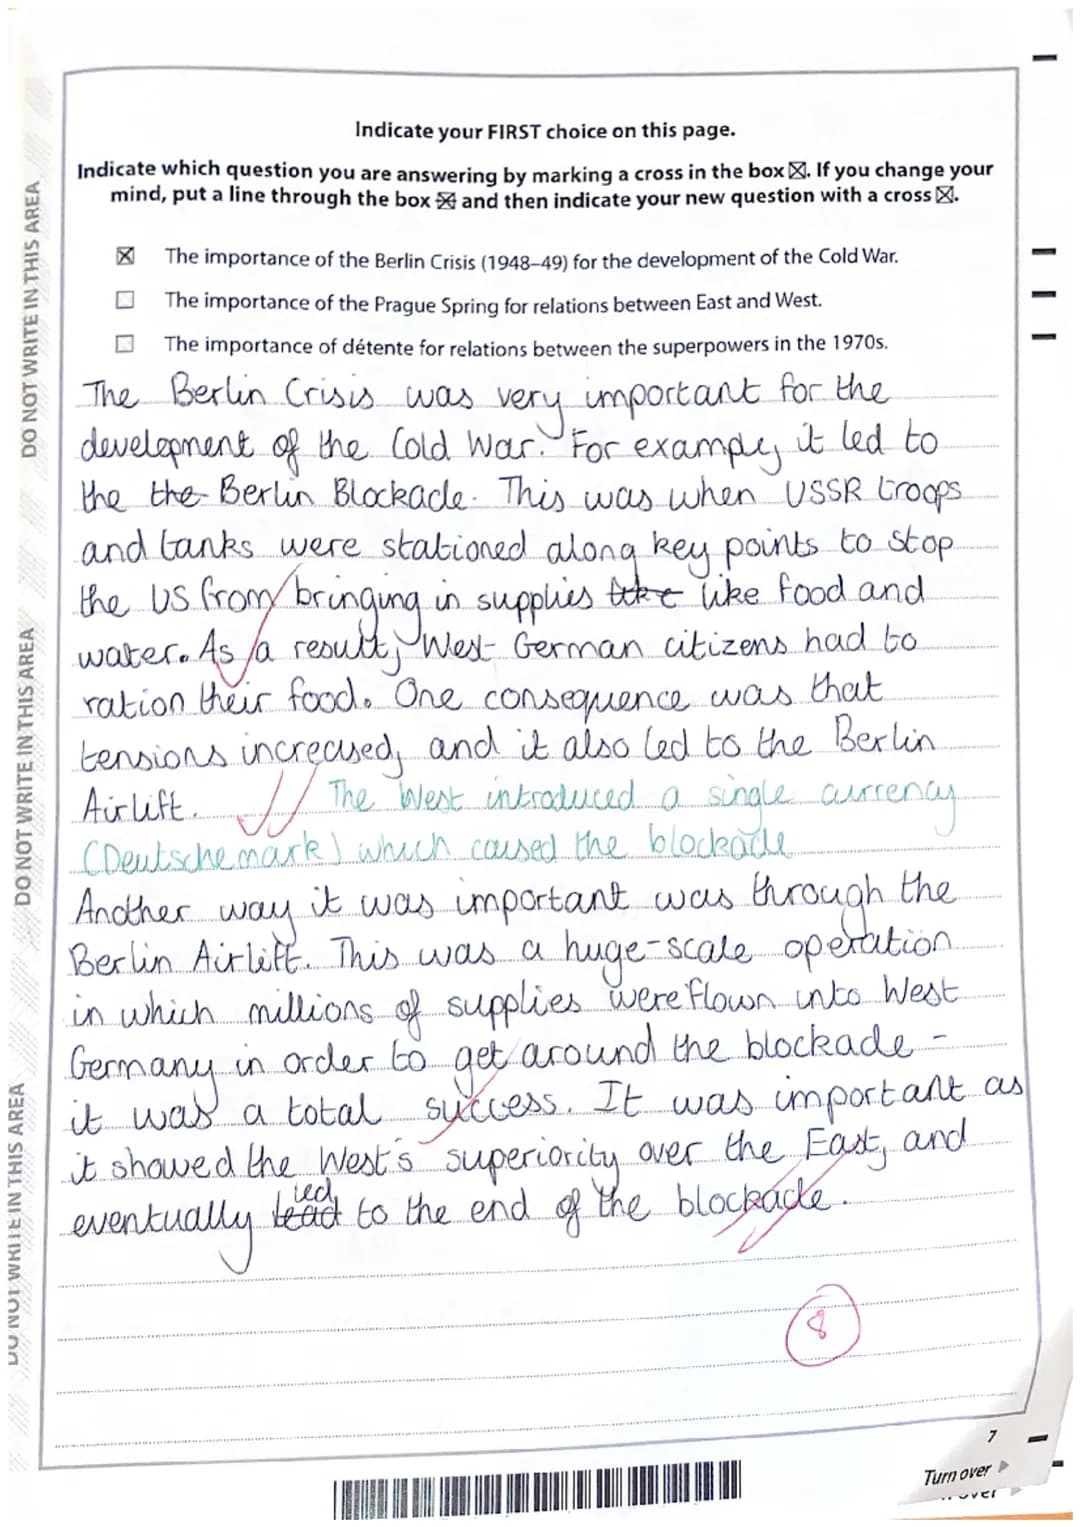 Indicate your FIRST choice on this page.
Indicate which question you are answering by marking a cross in the box ☒. If you change your
mind, put a line through the box and then indicate your new question with a cross ☒.
☒ The importance of the Berlin Crisis (1948–49) for the development of the Cold War.
☐ The importance of the Prague Spring for relations between East and West.
☐ The importance of détente for relations between the superpowers in the 1970s.
The Berlin Crisis was very important for the
development of the Cold War. For example, it led to
the the Berlin Blockade. This was when USSR troops
and tanks were stationed along key points to stop
the US from bringing in supplies like food and
water. As a result, West German citizens had to
ration their food. One consequence was that
tensions increased, and it also led to the Berlin
Airlift. The West introduced a single currency
(Deutschemark) which caused the blockade
Another way it was important was through the
Berlin Airlift. This was a huge-scale operation
in which millions of supplies were flown into West
Germany in order to get around the blockade -
it was a total success. It was important as
it showed the West's superiority over the East, and
eventually lead led to the end of the blockade.
8
7
Turn over
DO NOT WRITE IN THIS AREA
DO NOT WRITE IN THIS AREA
DO NOT WRITE IN THIS AREA